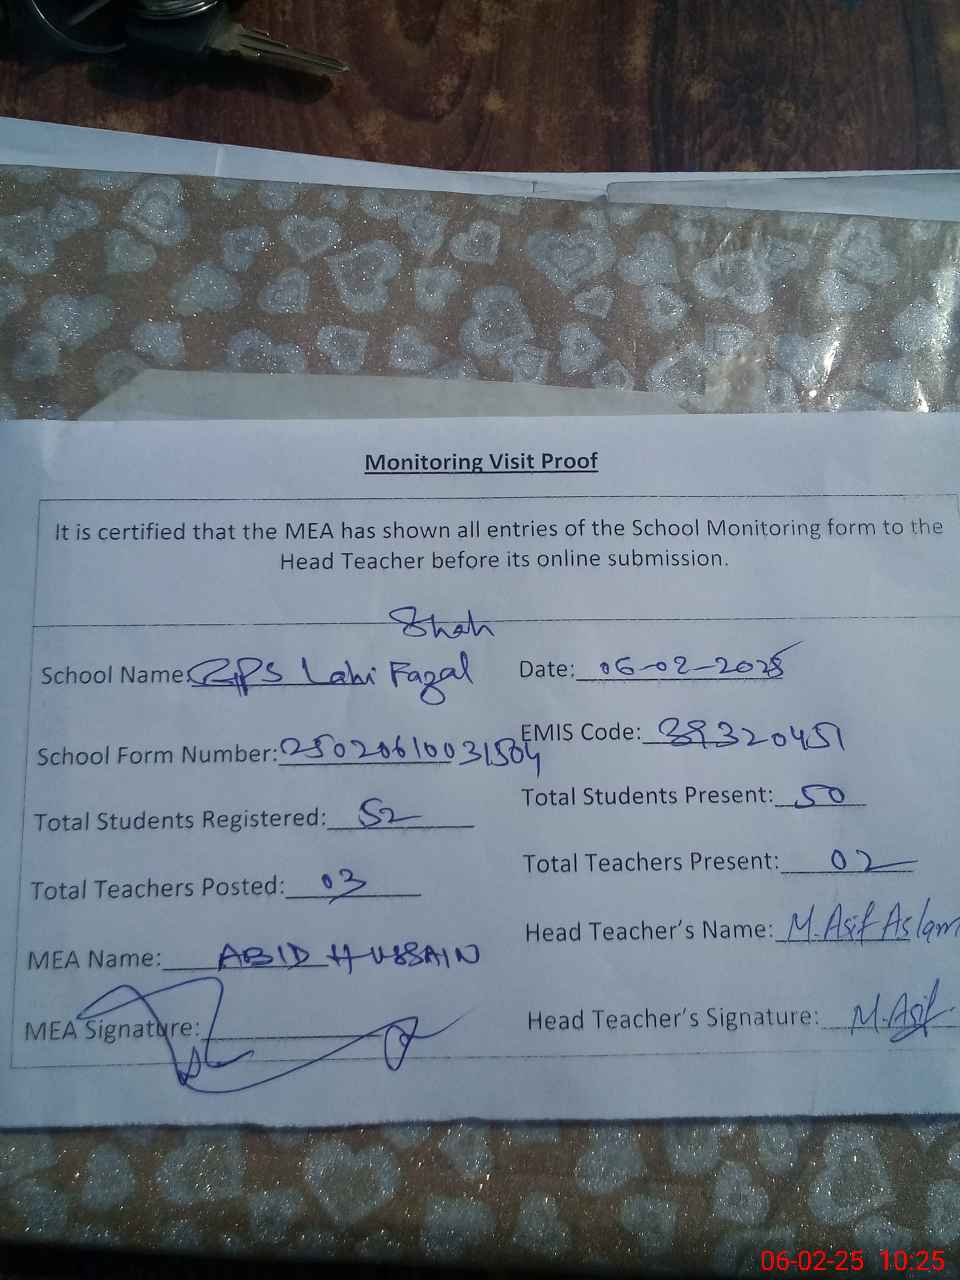 Monitoring Visit Proof
It is certified that the MEA has shown all entries of the School Monitoring form to the
Head Teacher before its online submission.
Shah
School Name: GPS Lahi Fazal Date: 06-02-2025
School Form Number: 25020610031504 EMIS Code: 39320451
Total Students Registered: 52 Total Students Present: 50
Total Teachers Posted: 03 Total Teachers Present: 02
MEA Name: ABID HUSSAIN Head Teacher's Name: M. Asif Aslam
MEA Signature: Head Teacher's Signature: M. Asif
06-02-25 10:25